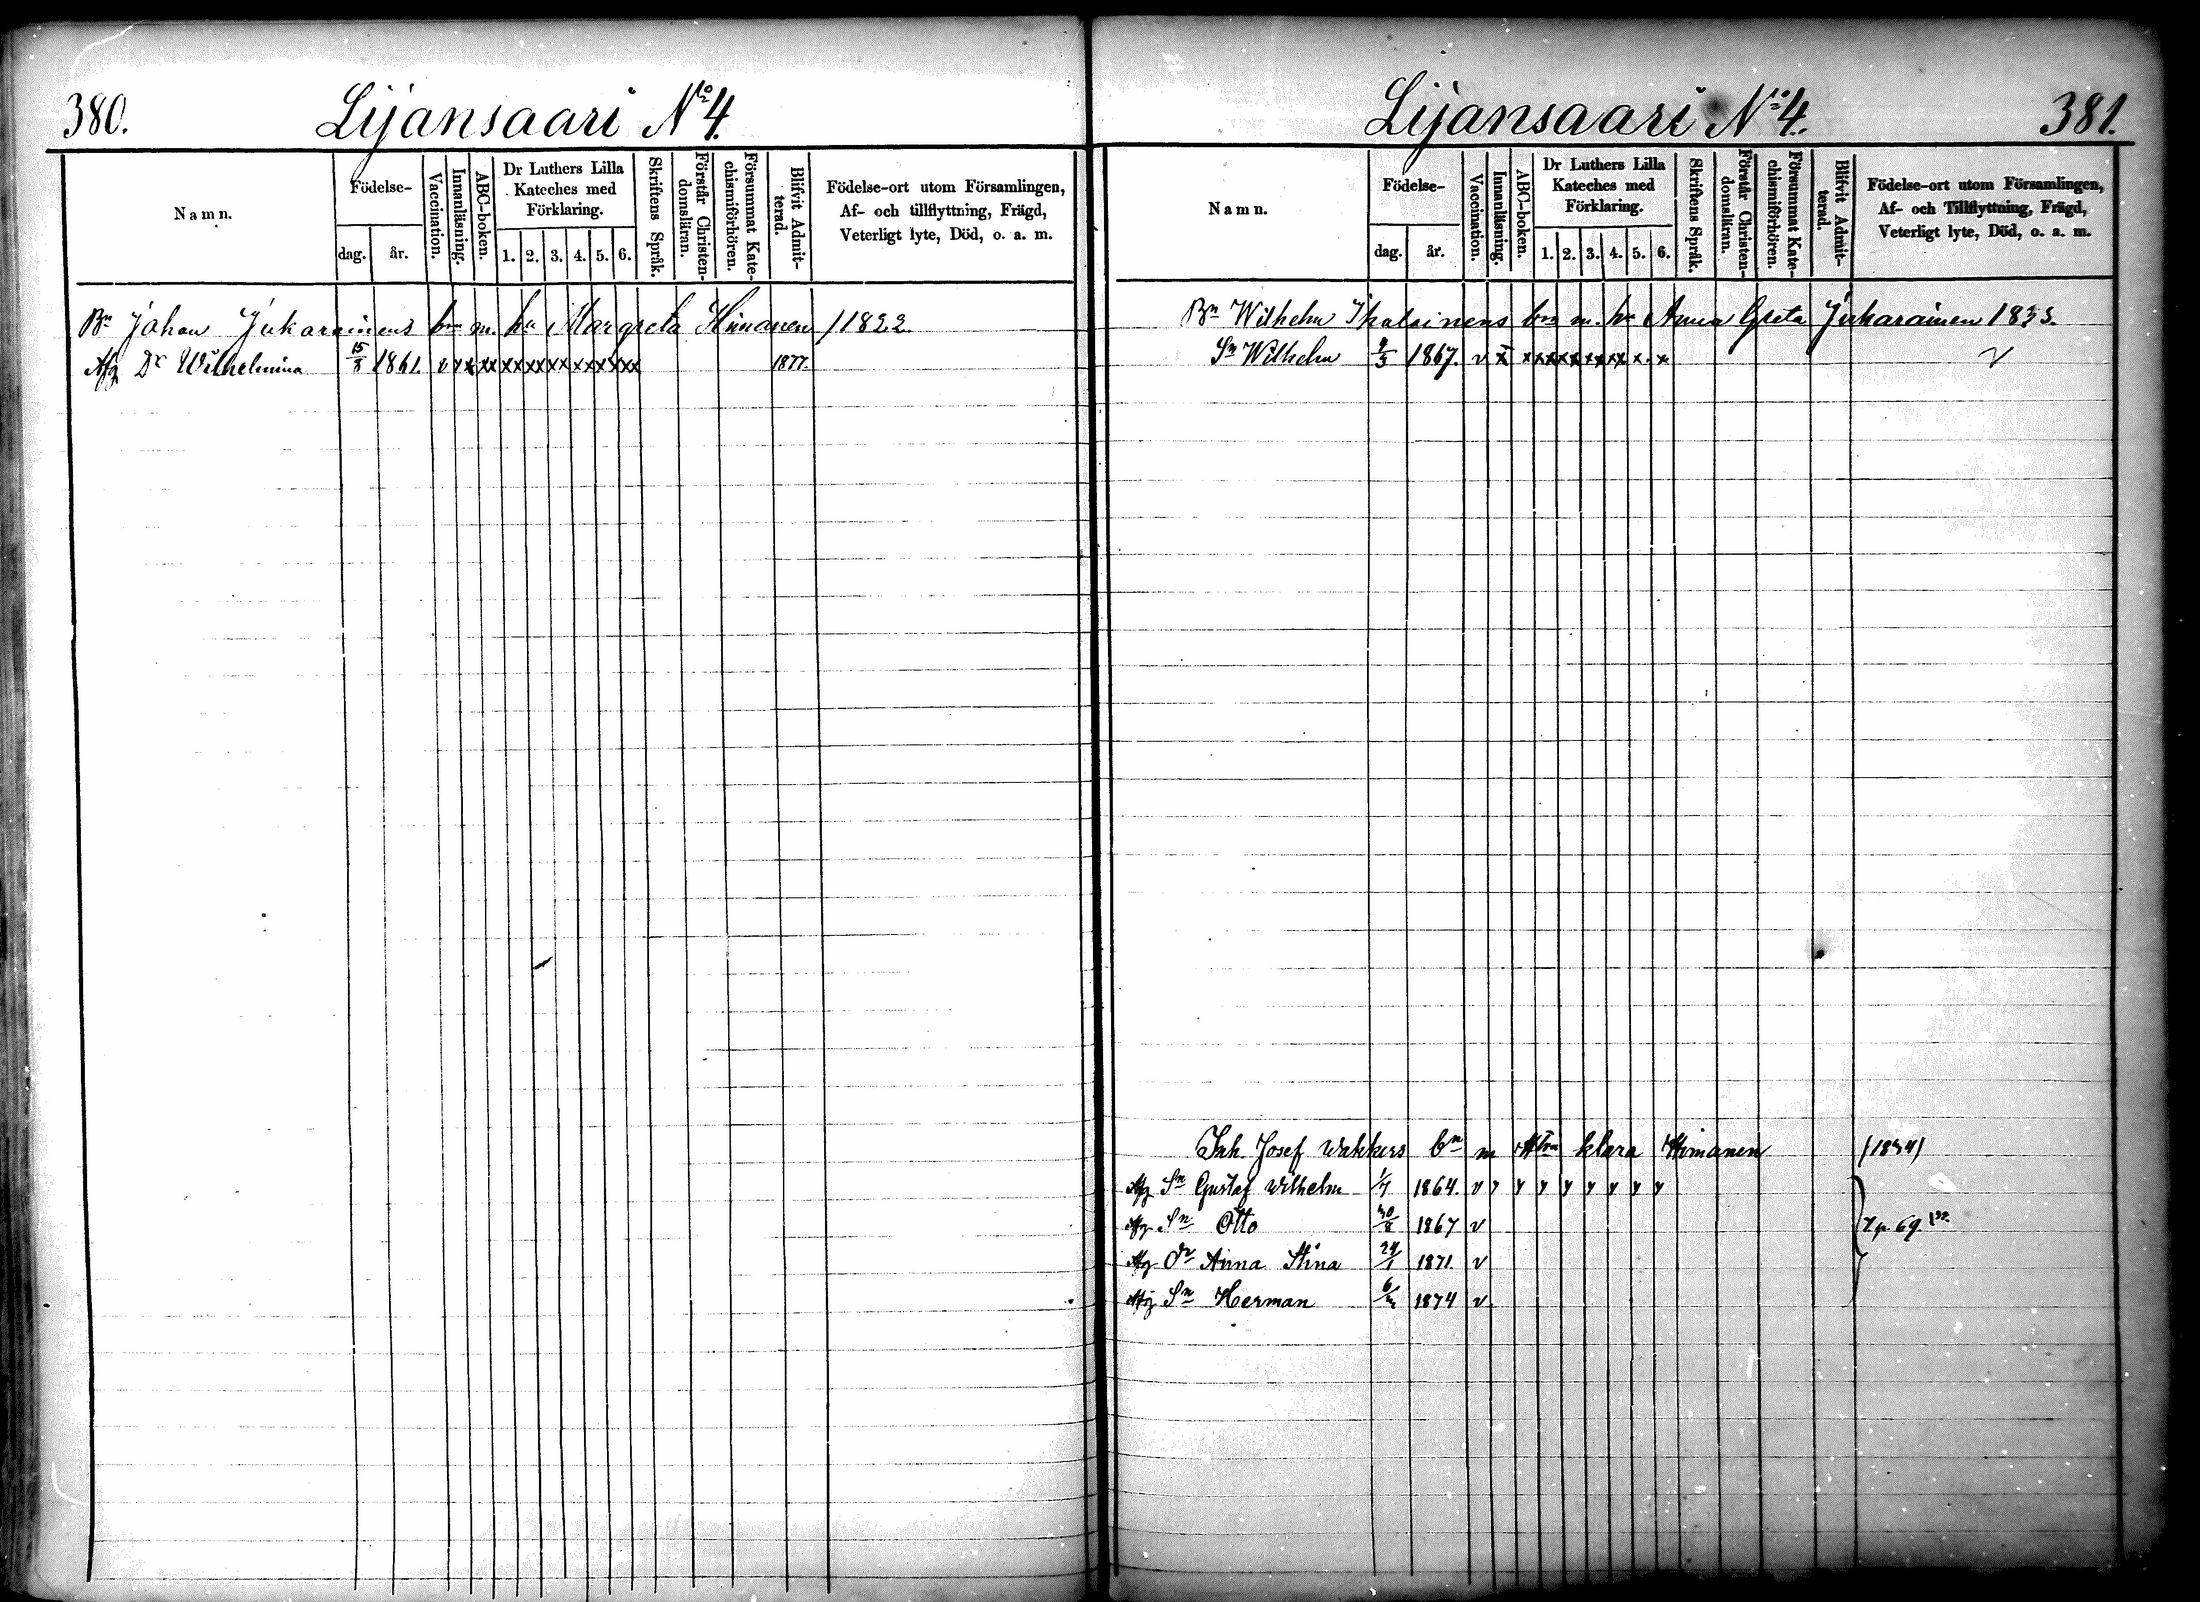 380.
Lijansaari No 4.
Namn.
Födelse-
dag.
år.
Vaccination.
Innanläsning.
ABC-boken.
Dr Luthers Lilla
Kateches med
Förklaring.
1. 2. 3. 4. 5. 6.
Skriftens Språk.
Förstår Christen-
domsläran.
Försummat Kate-
chismiförhören.
Blifvit Admit-
terad.
Födelse-ort utom Församlingen,
Af- och tillflyttning, Frägd,
Veterligt lyte, Död, o. a. m.
Bn Johan Jukarainens bn m. hu Margreta Himanen /1822.
Afg Dr Wilhelmina 15/8 1861. v v x x x x x x x x x x x x x x x 1877.
Lijansaari No 4.
381.
Namn.
Födelse-
dag.
år.
Vaccination.
Innanläsning.
ABC-boken.
Dr Luthers Lilla
Kateches med
Förklaring.
1. 2. 3. 4. 5. 6.
Skriftens Språk.
Förstår Christen-
domsläran.
Försummat Kate-
chismiförhören.
Blifvit Admit-
terad.
Födelse-ort utom Församlingen,
Af- och Tillflyttning, Frägd,
Veterligt lyte, Död, o. a. m.
Bn Wilhelm Ihalainens bn m. hu Anna Greta Jukarainen 1833.
Sn Wilhelm 9/3 1867. v x x x x x x x x x x x x v
Joh. Josef Wakkers bn m Klara Himanen (1834)
Afg Sn Gustaf Wilhelm 1/7 1864. v y y y y y y y y
Afg Sn Otto 30/8 1867 v p. 69.
Afg Dr Anna Stina 24/1 1871. v
Afg Sn Herman 1874 v